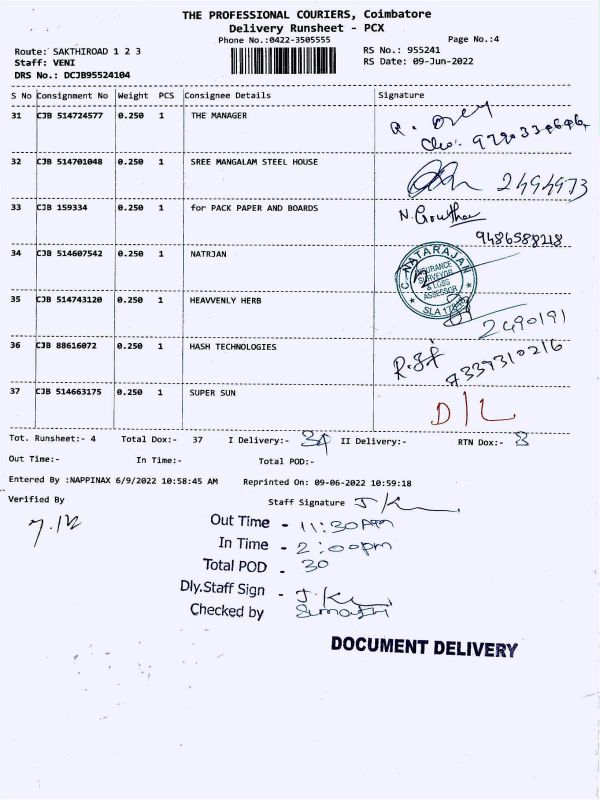 THE PROFESSIONAL COURIERS, Coimbatore
Delivery Runsheet - PCX
Phone No.:0422-3505555 Page No.:4
Route: SAKTHIROAD 1 2 3 RS No.: 955241
Staff: VENI RS Date: 09-Jun-2022
DRS No.: DCJB95524104
S No Consignment No Weight PCS Consignee Details Signature
31 CJB 514724577 0.250 1 THE MANAGER
32 CJB 514701048 0.250 1 SREE MANGALAM STEEL HOUSE 2494973
33 CJB 159334 0.250 1 for PACK PAPER AND BOARDS N. Gowtham
9486588218
34 CJB 514607542 0.250 1 NATRJAN
C. NATARAJAN
INSURANCE
SURVEYOR
& LOSS
ASSESSOR
35 CJB 514743120 0.250 1 HEAVVENLY HERB
2490191
36 CJB 88616072 0.250 1 HASH TECHNOLOGIES
7339310216
37 CJB 514663175 0.250 1 SUPER SUN D/L
Tot. Runsheet:- 4 Total Dox:- 37 I Delivery:- 34 II Delivery:- RTN Dox:- 3
Out Time:- In Time:- Total POD:-
Entered By :NAPPINAX 6/9/2022 10:58:45 AM Reprinted On: 09-06-2022 10:59:18
Verified By Staff Signature
Out Time - 11:30Am
In Time - 2:00pm
Total POD - 30
Dly.Staff Sign -
Checked by
DOCUMENT DELIVERY